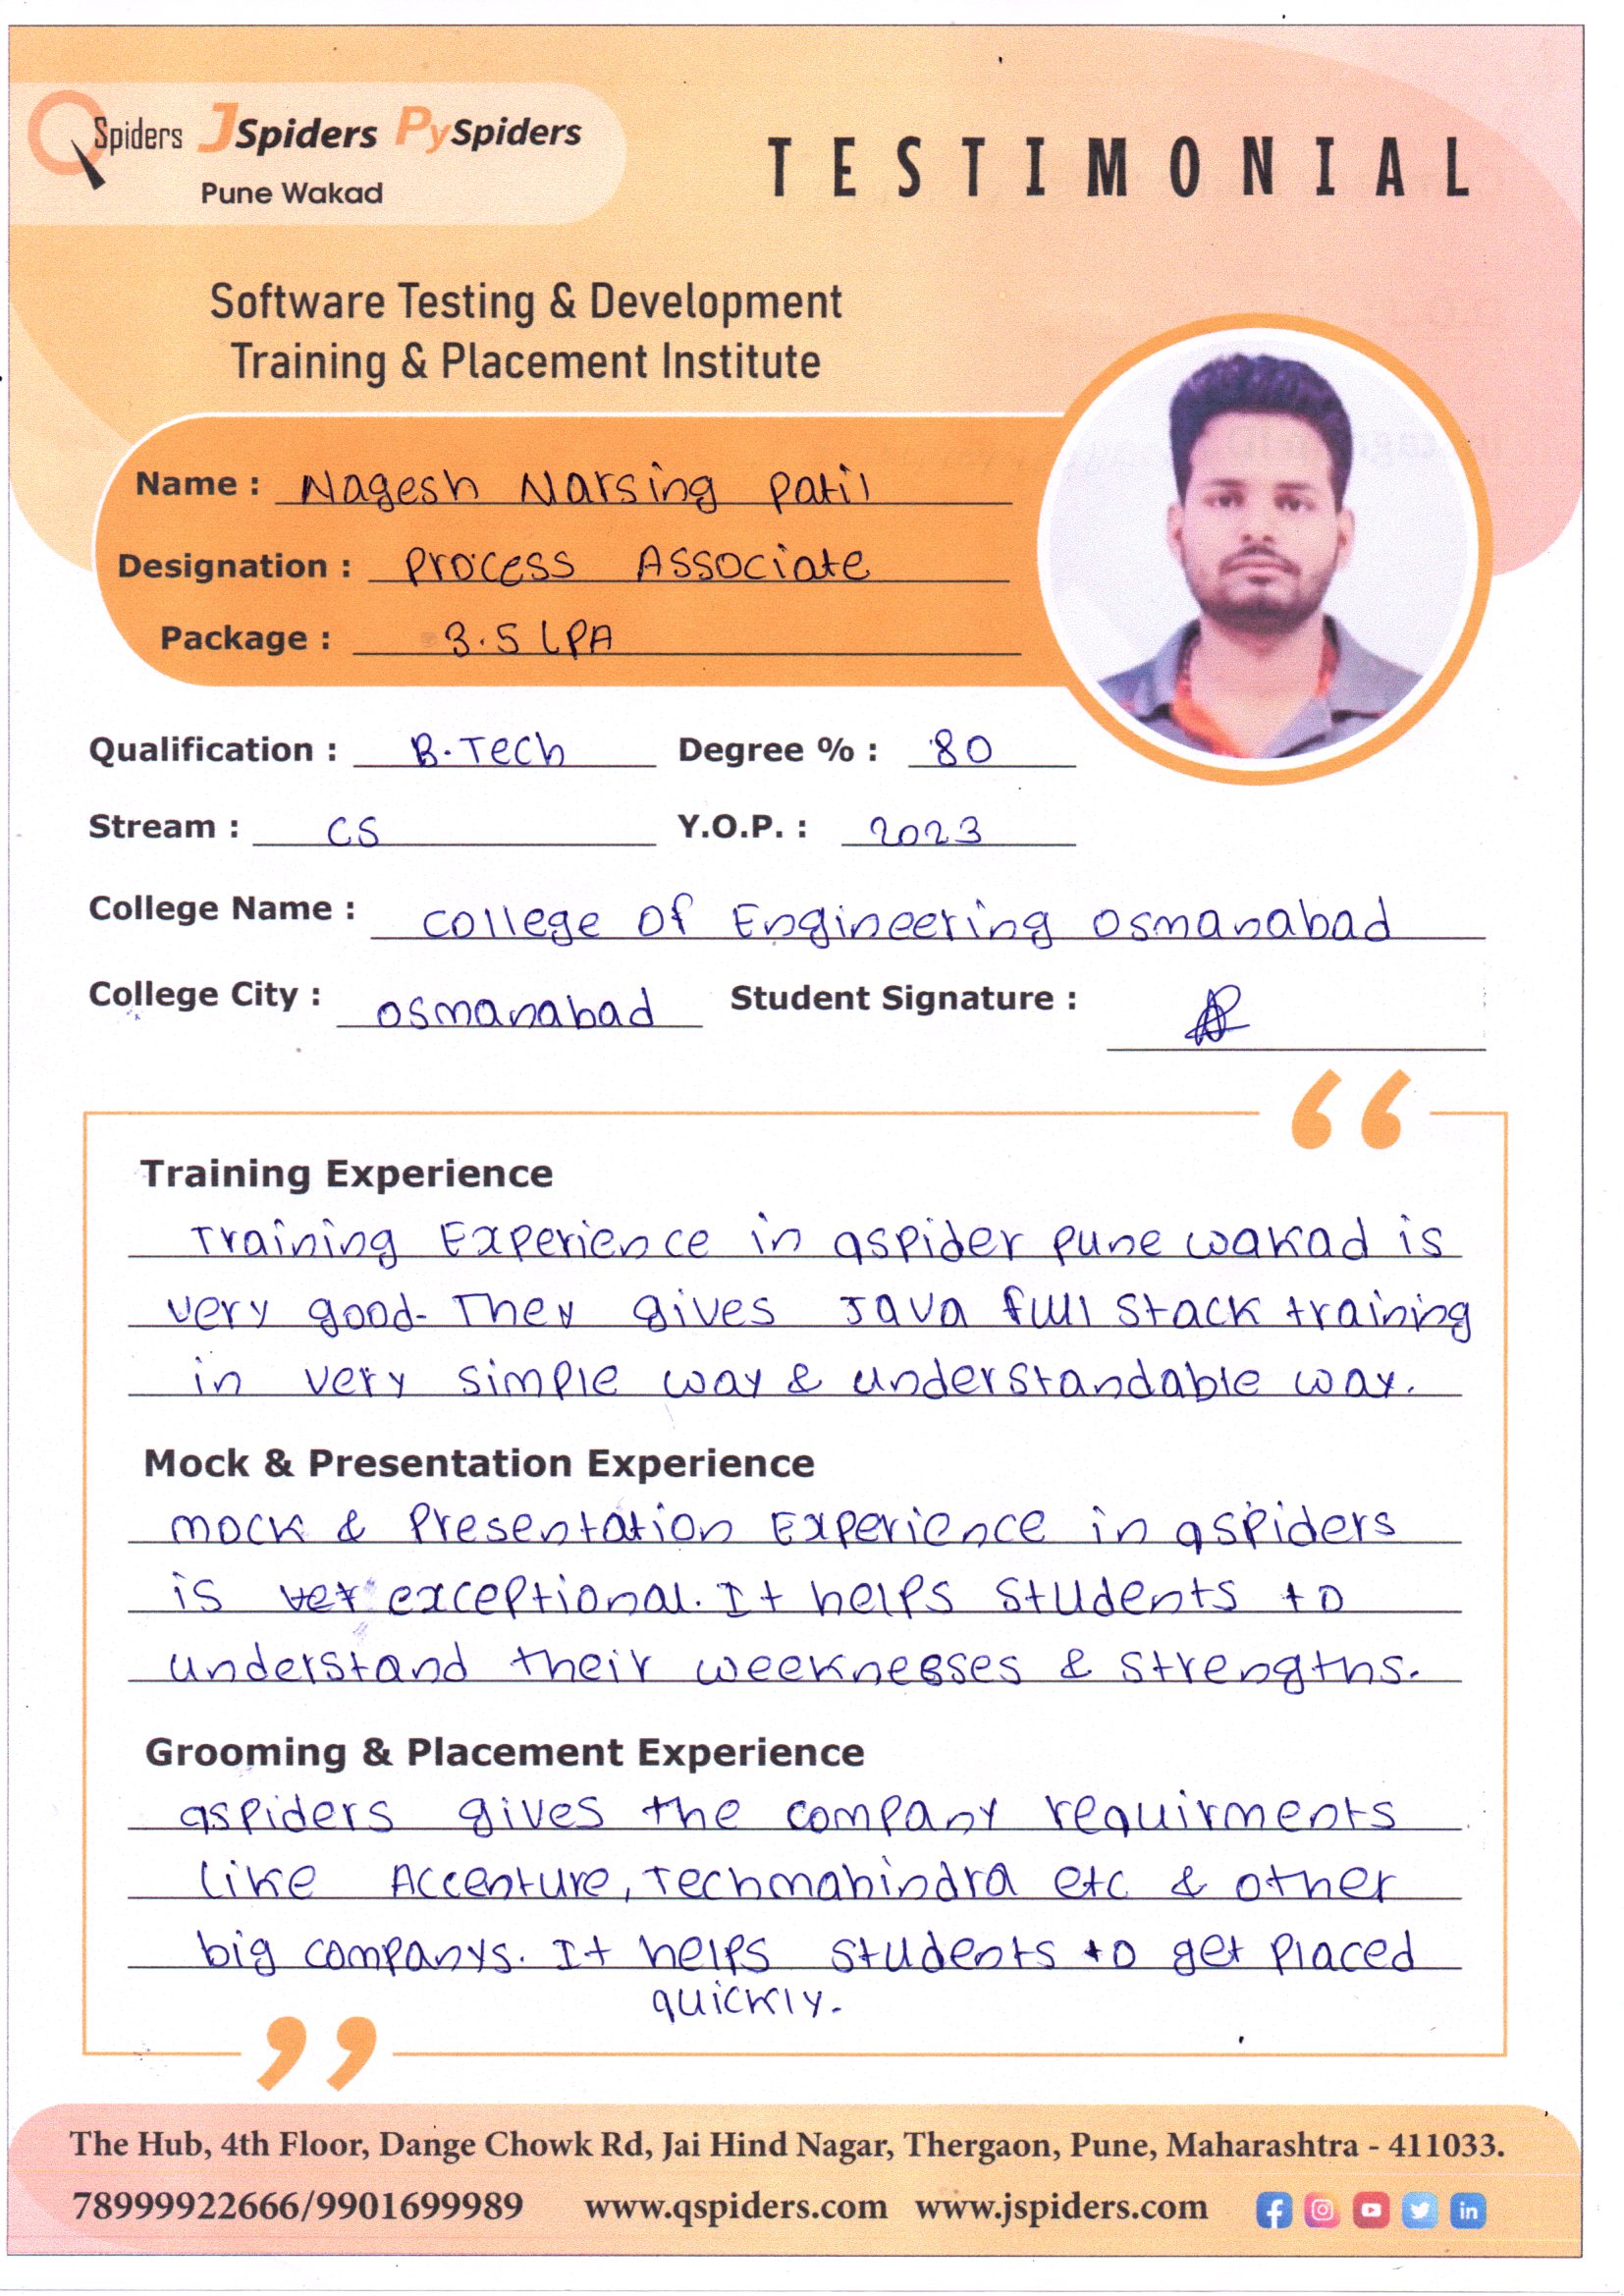 QSpiders JSpiders PySpiders
Pune Wakad
TESTIMONIAL
Software Testing & Development
Training & Placement Institute
Name : Nagesh Narsing Patil
Designation : Process Associate
Package : 3.5 LPA
Qualification : B.Tech Degree % : 80
Stream : CS Y.O.P. : 2023
College Name : College Of Engineering Osmanabad
College City : Osmanabad Student Signature :
Training Experience
Training Experience in qspider pune wakad is
very good. They gives Java full stack training
in very simple way & understandable way.
Mock & Presentation Experience
mock & Presentation Experience in qspiders
is exceptional. It helps students to
understand their weeknesses & strengths.
Grooming & Placement Experience
qspiders gives the company requirments
like Accenture, Techmahindra etc & other
big companys. It helps students to get placed
quickly.
The Hub, 4th Floor, Dange Chowk Rd, Jai Hind Nagar, Thergaon, Pune, Maharashtra - 411033.
78999922666/9901699989 www.qspiders.com www.jspiders.com